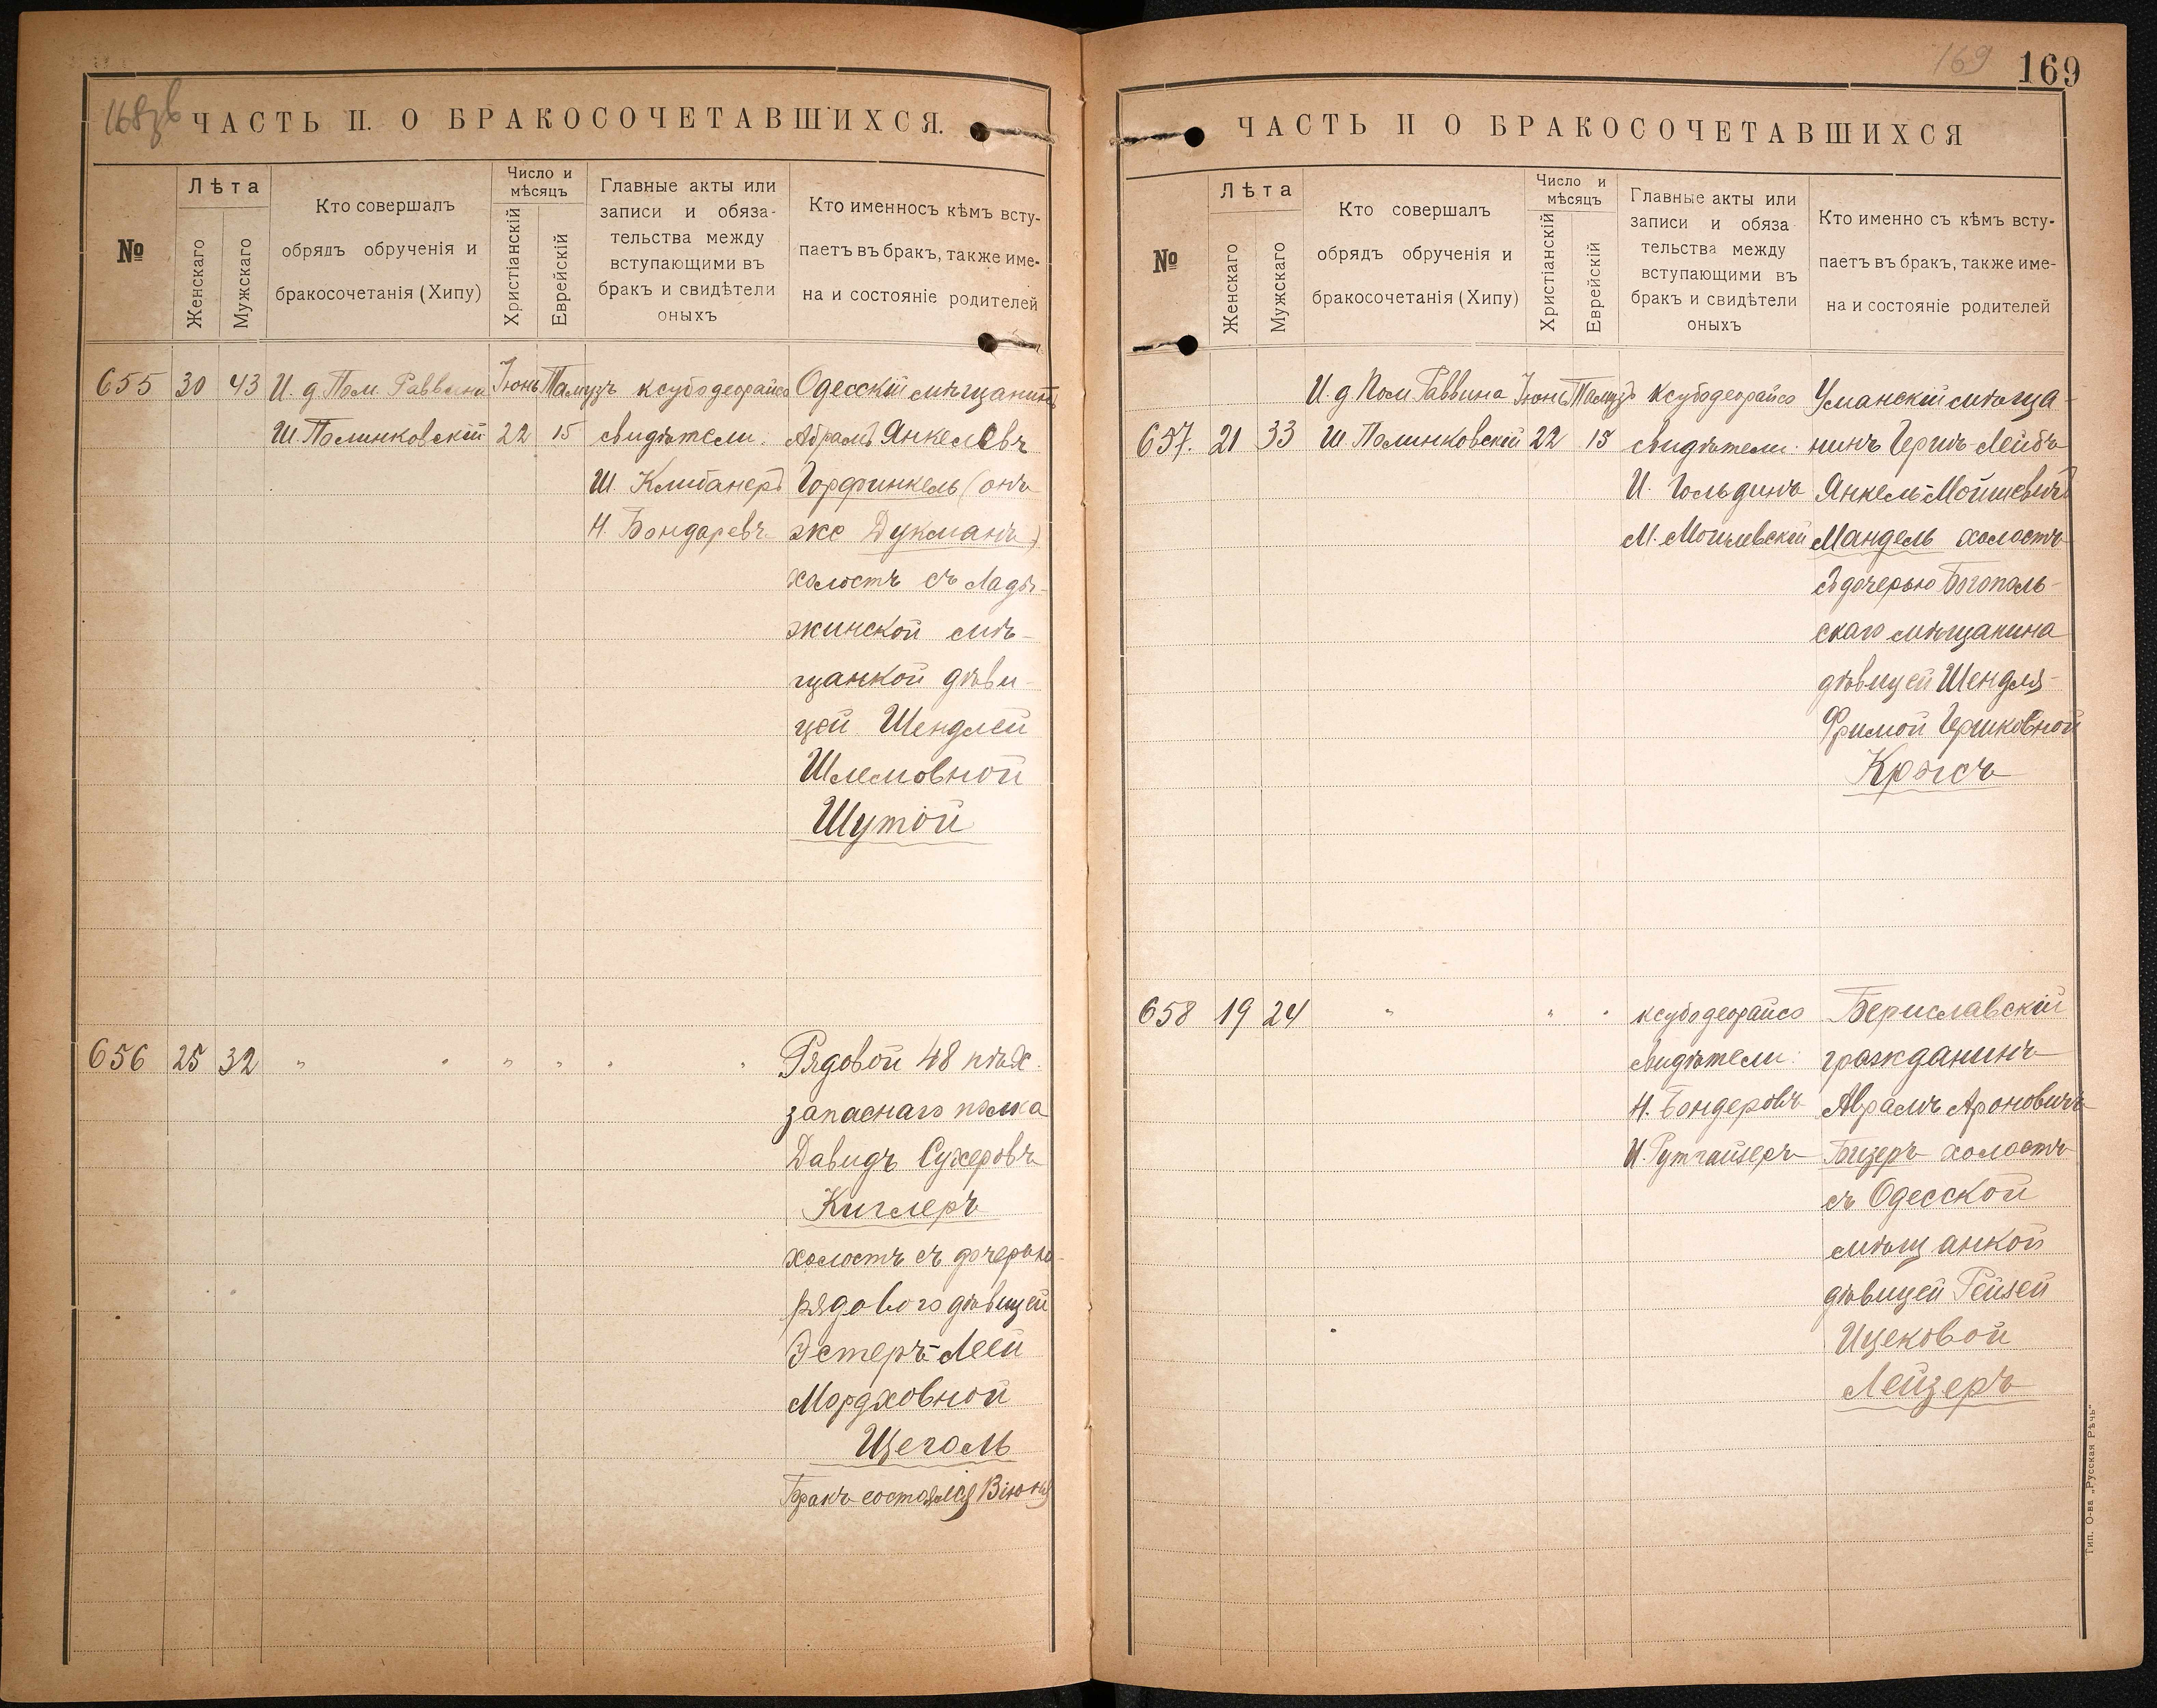 168зв
ЧАСТЬ II. О БРАКОСОЧЕТАВШИХСЯ.
№
Лѣта
Женскаго
Мужскаго
Кто совершалъ
обрядъ обрученія и
бракосочетанія (Хипу)
Число и
мѣсяцъ
Христіанскій
Еврейскій
Главные акты или
записи и обяза-
тельства между
вступающими въ
бракъ и свидѣтели
оныхъ
Кто именносъ кѣмъ всту-
паетъ въ бракъ, также име-
на и состояніе родителей
655 30 43
И. д. Пом. Раввина
Ш. Полинковскій
Іюнь
22
Тамузъ
15
ксубодеорайсо
свидѣтели:
Ш. Клибанеръ
Н. Бондаревъ
Одесскій мѣщанинъ
Абрамъ Янкелевъ
Горфинкель (онъ
же Дукманъ)
холостъ съ Лады-
жинской мѣ-
щанкой дѣви-
цей Шендлей
Шлемовной
Шутой
656 25 32 " " " " " "
Рядовой 48 пѣх.
запаснаго полка
Давидъ Сухеровъ
Киглеръ
холостъ съ дочерью
рядового дѣвицей
Эстеръ-Леей
Мордховной
Щеголь
Бракъ состоялся 13 іюня
169
169
ЧАСТЬ II О БРАКОСОЧЕТАВШИХСЯ
№
Лѣта
Женскаго
Мужскаго
Кто совершалъ
обрядъ обрученія и
бракосочетанія (Хипу)
Число и
мѣсяцъ
Христіанскій
Еврейскій
Главные акты или
записи и обяза
тельства между
вступающими въ
бракъ и свидѣтели
оныхъ
Кто именно съ кѣмъ всту-
паетъ въ бракъ, также име-
на и состояніе родителей
657. 21 33
И. д Пом Раввина
Ш Полинковскій
Іюнь
22
Тамузъ
15
ксубодеорайсо
свидѣтели:
И. Гольдинъ
М. Могилевскій
Уманскій мѣща-
нинъ Гершъ-Лейбъ
Янкель-Мойшевичъ
Мандель холостъ
съ дочерью Богополь-
скаго мѣщанина
дѣвицей Шендля-
Фримой Гершковной
Крысъ
658 19 24 " " "
ксубодеорайсо
свидѣтели:
Н. Бондеровъ
И. Рутгайзеръ
Бериславскій
гражданинъ
Аврамъ Ароновичъ
Бизеръ холостъ
съ Одесской
мѣщанкой
дѣвицей Рейзей
Ицековой
Лейзеръ
Тип. О-ва „Русская Рѣчь"